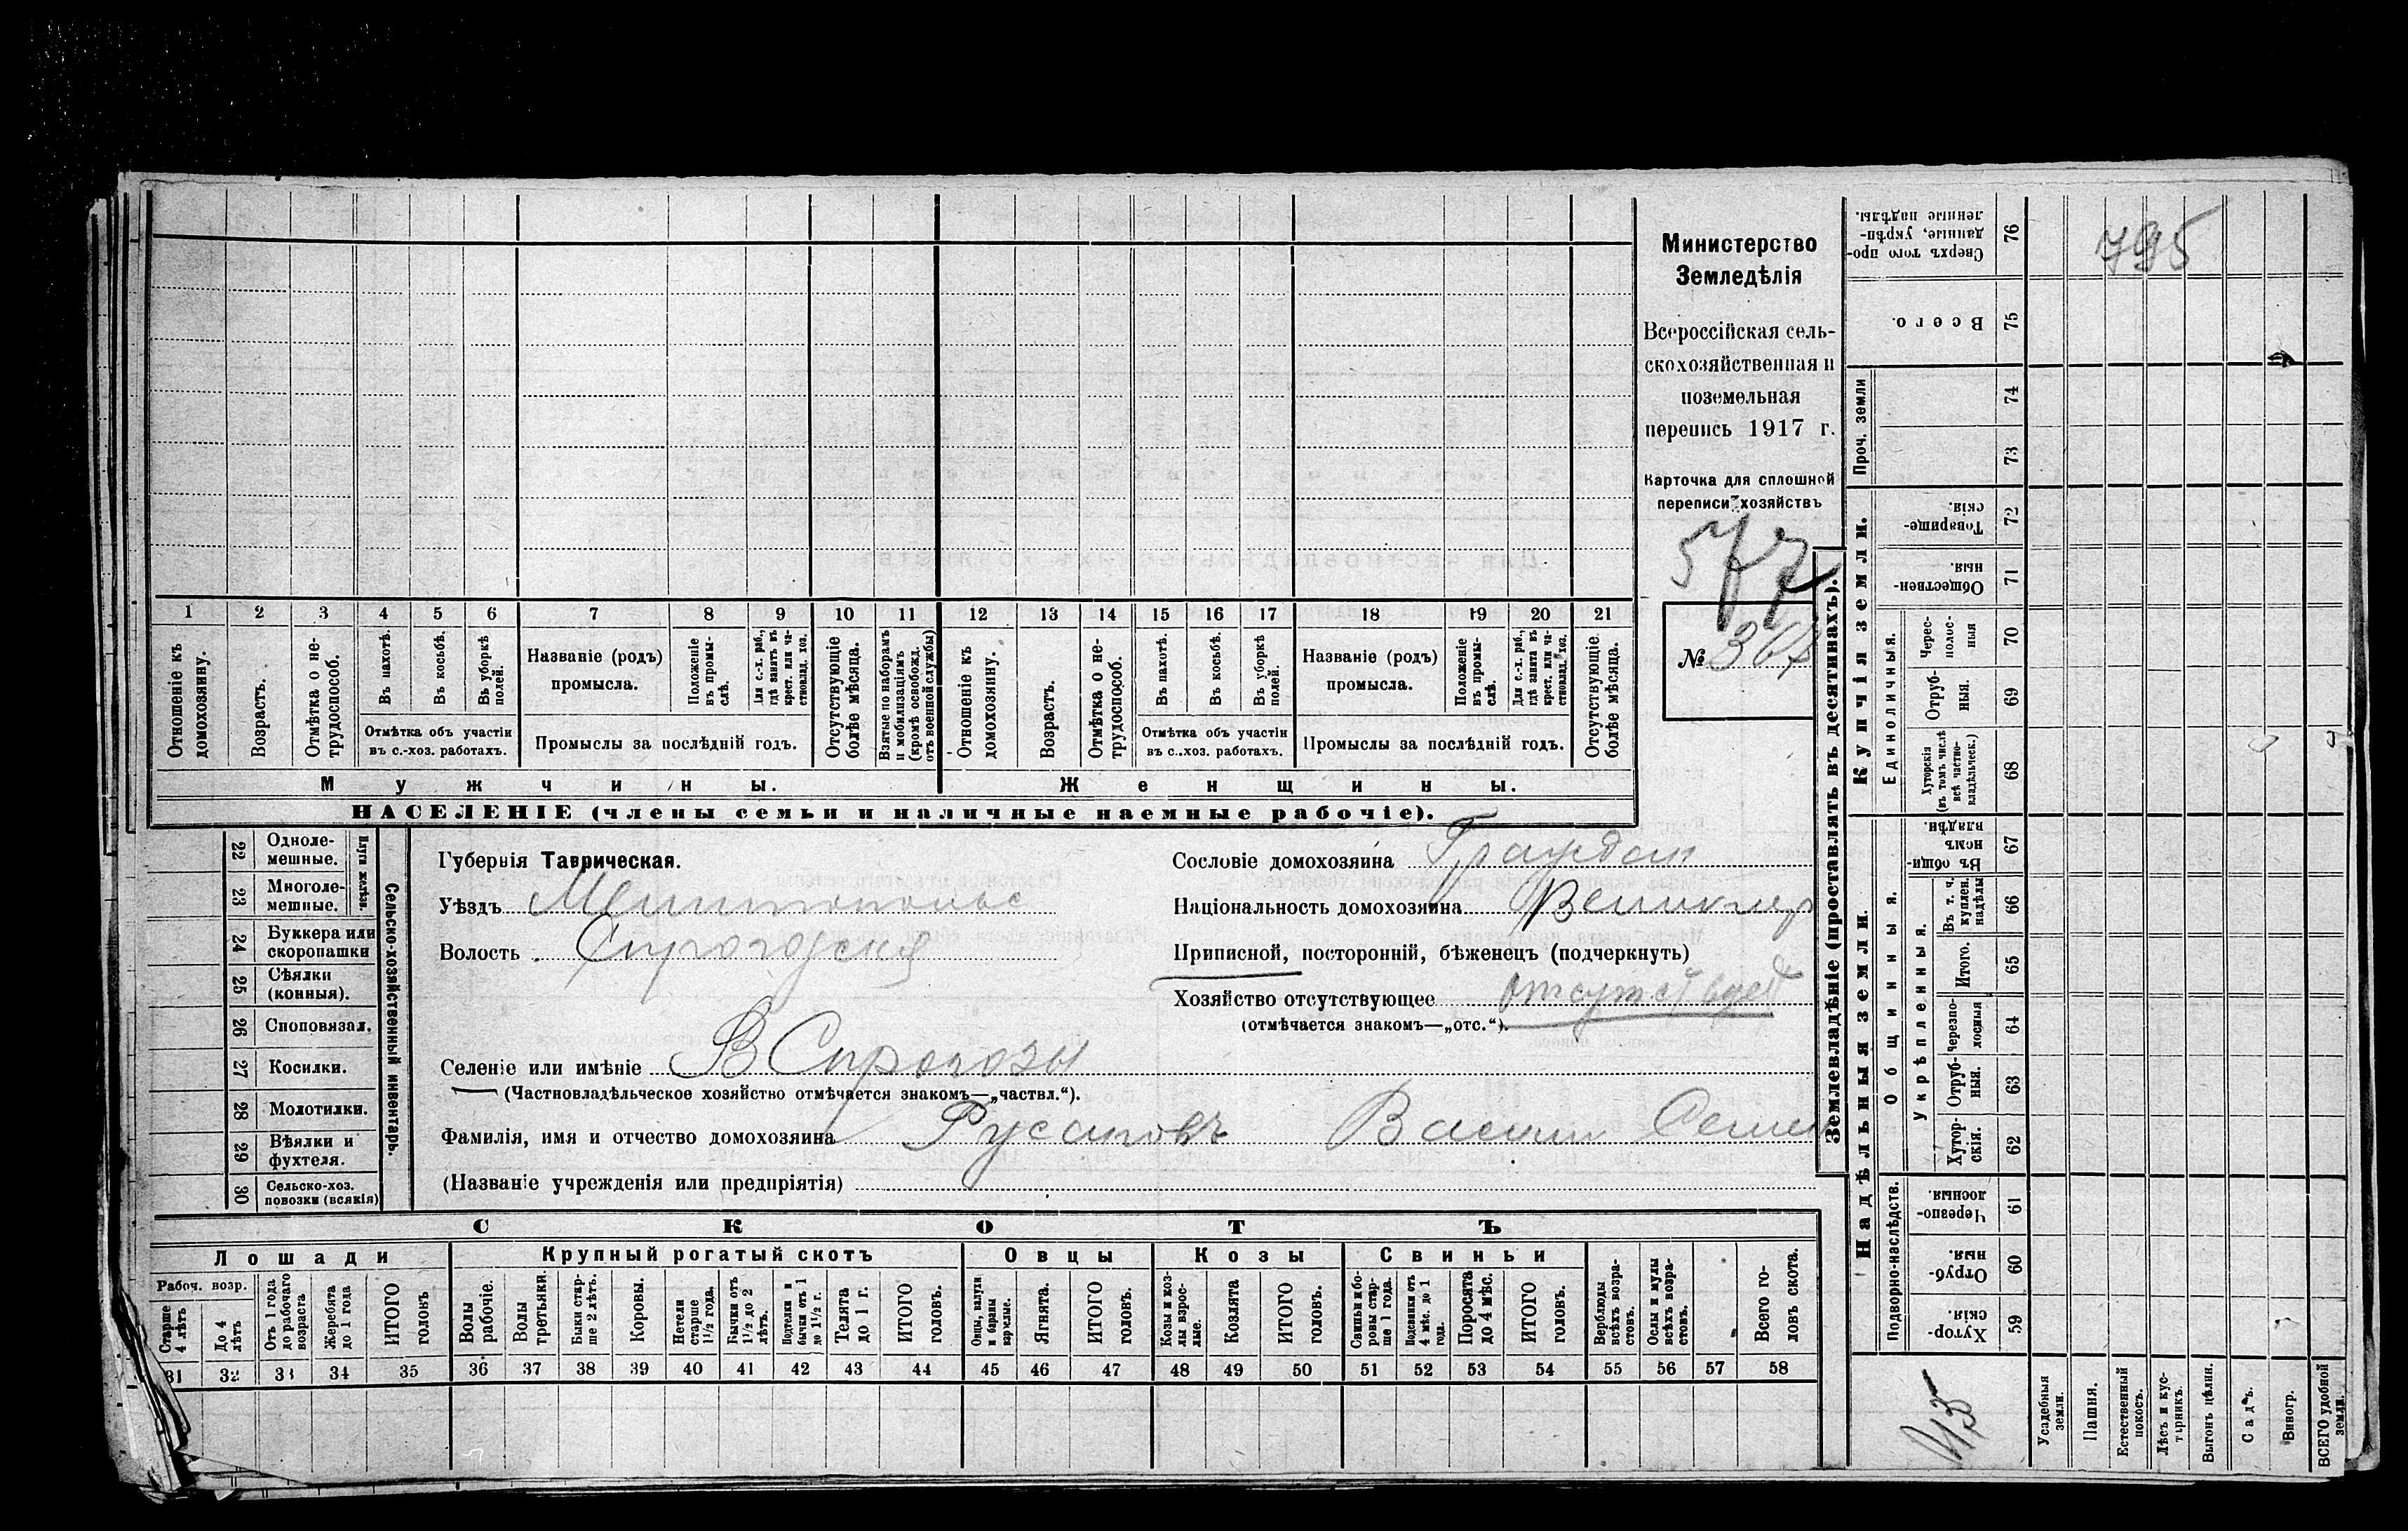 Министерство
Земледѣлія
Всероссійская сель-
скохозяйственная и
поземельная
перепись 1917 г.
Карточка для сплошной
переписи хозяйствъ
577
№ 367
1 2 3 4 5 6 7 8 9 10 11 12 13 14 15 16 17 18 19 20 21
Отношеніе къ домохозяину.
Возрастъ.
Отмѣтка о не-трудоспособ.
Въ пахотѣ.
Въ косьбѣ.
Въ уборкѣ полей.
Отмѣтка объ участіи
въ с.-хоз. работахъ.
Названіе (родъ)
промысла.
Положеніе въ промы-слѣ.
Для с.-х. раб., гдѣ занятъ въ крест. или ча-стновлад. хоз.
Промыслы за послѣдній годъ.
Отсутствующіе болѣе мѣсяца.
Взятые по наборамъ и мобилизаціямъ (кромѣ освобожд. отъ военной службы)
Отношеніе къ домохозяину.
Возрастъ.
Отмѣтка о не-трудоспособ.
Въ пахотѣ.
Въ косьбѣ.
Въ уборкѣ полей.
Отмѣтка объ участіи
въ с.-хоз. работахъ.
Названіе (родъ)
промысла.
Положеніе въ промы-слѣ.
Для с.-х. раб., гдѣ занята въ крест. или ча-стновлад. хоз.
Промыслы за послѣдній годъ.
Отсутствующіе болѣе мѣсяца.
Мужчины.
Женщины.
НАСЕЛЕНІЕ (члены семьи и наличные наемные рабочіе).
Сельско-хозяйственный инвентарь.
Плуги желѣзн.
22 Одноле-мешные.
23 Многоле-мешные.
24 Буккера или скоропашки
25 Сѣялки (конныя).
26 Сноповязал.
27 Косилки.
28 Молотилки.
29 Вѣялки и фухтеля.
30 Сельско-хоз. повозки (всякія)
Губернія Таврическая.
Уѣздъ
Волость Сирогозская
Селеніе или имѣніе В Сирогозы
(Частновладѣльческое хозяйство отмѣчается знакомъ—„частвл.“).
Фамилія, имя и отчество домохозяина Русановъ
(Названіе учрежденія или предпріятія)
Сословіе домохозяина Граждан
Національность домохозяина
Приписной, посторонній, бѣженецъ (подчеркнуть)
Хозяйство отсутствующее отсутствует
(отмѣчается знакомъ—„отс.“).
СКОТЪ
Лошади
Крупный рогатый скотъ
Овцы
Козы
Свиньи
Рабоч. возр.
Старше 4 лѣтъ
До 4 лѣтъ
Отъ 1 года до рабочаго возраста
Жеребята до 1 года
ИТОГО головъ
Волы рабочіе.
Волы третьяки.
Быки стар-ше 2 лѣтъ.
Коровы.
Нетели старше 1½ года.
Бычки отъ 1½ до 2 лѣтъ.
Подтелки и бычки отъ 1 до 1½ г.
Телята до 1 г.
ИТОГО головъ.
Овцы, валухи и бараны взрослые.
Ягнята.
ИТОГО головъ.
Козы и коз-лы взрос-лые.
Козлята
ИТОГО головъ.
Свиньи и бо-ровы стар-ше 1 года.
Подсвинки отъ 4 мѣс. до 1 года.
Поросята до 4 мѣс.
ИТОГО головъ.
Верблюды всѣхъ возра-стовъ.
Ослы и мулы всѣхъ возра-стовъ.
Всего го-ловъ скота.
31 32 33 34 35 36 37 38 39 40 41 42 43 44 45 46 47 48 49 50 51 52 53 54 55 56 57 58
Землевладѣніе (проставлять въ десятинахъ).
Проч. земли
Купчія земли.
Единоличныя.
Надѣльныя земли.
Общинныя.
Укрѣпленныя.
Подворно-наслѣдств.
76 Сверхъ того про-данные, укрѣп-ленные надѣлы.
795
75 Всего.
74
73
72 Товарище-скія.
71 Обществен-ныя.
70 Черес-полос-ныя
69 Отруб-ныя.
68 Хуторскія (въ томъ числѣ всѣ частно-владѣльческ.)
67 Въ общи-номъ владѣн.
66 Въ т. ч. куплен. надѣлы
65 Итого.
64 Черезпо-лосныя
63 Отруб-ныя.
62 Хутор-скія.
61 Черезпо-лосныя.
60 Отруб-ныя.
59 Хутор-скія.
Усадебныя земли.
Пашня.
Естественный покосъ.
Лѣсъ и кус-тарникъ.
Выгонъ цѣлин.
Садъ.
Виногр.
ВСЕГО удобной земли.